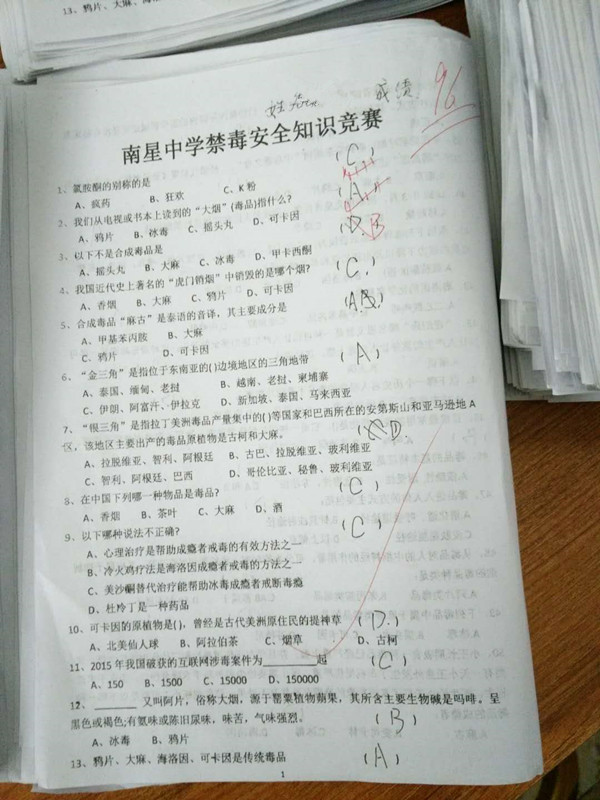 13、鸦片、大麻、海洛
姓名
成绩
96
南星中学禁毒安全知识竞赛
1、氯胺酮的别称的是 (C)
A、疯药 B、狂欢 C、K粉
2、我们从电视或书本上读到的“大烟”(毒品)指什么? (A)
A、鸦片 B、冰毒 C、摇头丸 D、可卡因
3、以下不是合成毒品是 B
A、摇头丸 B、大麻 C、冰毒 D、甲卡西酮
4、我国近代史上著名的“虎门销烟”中销毁的是哪个烟? (C.)
A、香烟 B、大麻 C、鸦片 D、可卡因
5、合成毒品“麻古”是泰语的音译，其主要成分是 (A)
A、甲基苯丙胺 B、大麻
C、鸦片 D、可卡因
6、“金三角”是指位于东南亚的()边境地区的三角地带 (A)
A、泰国、缅甸、老挝 B、越南、老挝、柬埔寨
C、伊朗、阿富汗、伊拉克 D、新加坡、泰国、马来西亚
7、“银三角”是指拉丁美洲毒品产量集中的()等国家和巴西所在的安第斯山和亚马逊地A
区，该地区主要出产的毒品原植物是古柯和大麻。 D)
A、拉脱维亚、智利、阿根廷 B、古巴、拉脱维亚、玻利维亚
C、智利、阿根廷、巴西 D、哥伦比亚、秘鲁、玻利维亚
8、在中国下列哪一种物品是毒品? (C)
A、香烟 B、茶叶 C、大麻 D、酒
9、以下哪种说法不正确? (C)
A、心理治疗是帮助成瘾者戒毒的有效方法之一
B、冷火鸡疗法是海洛因成瘾者戒毒的方法之一
C、美沙酮替代治疗能帮助冰毒成瘾者戒断毒瘾
D、杜冷丁是一种药品
10、可卡因的原植物是()，曾经是古代美洲原住民的提神草 (D.)
A、北美仙人球 B、阿拉伯茶 C、烟草 D、古柯
11、2015年我国破获的互联网涉毒案件为________起 (C)
A、150 B、1500 C、15000 D、150000
12、______ 又叫阿片，俗称大烟，源于罂粟植物蒴果，其所含主要生物碱是吗啡，呈
黑色或褐色;有氨味或陈旧尿味，味苦，气味强烈。 (B)
A、冰毒 B、鸦片
13、鸦片、大麻、海洛因、可卡因是传统毒品 (A)
1